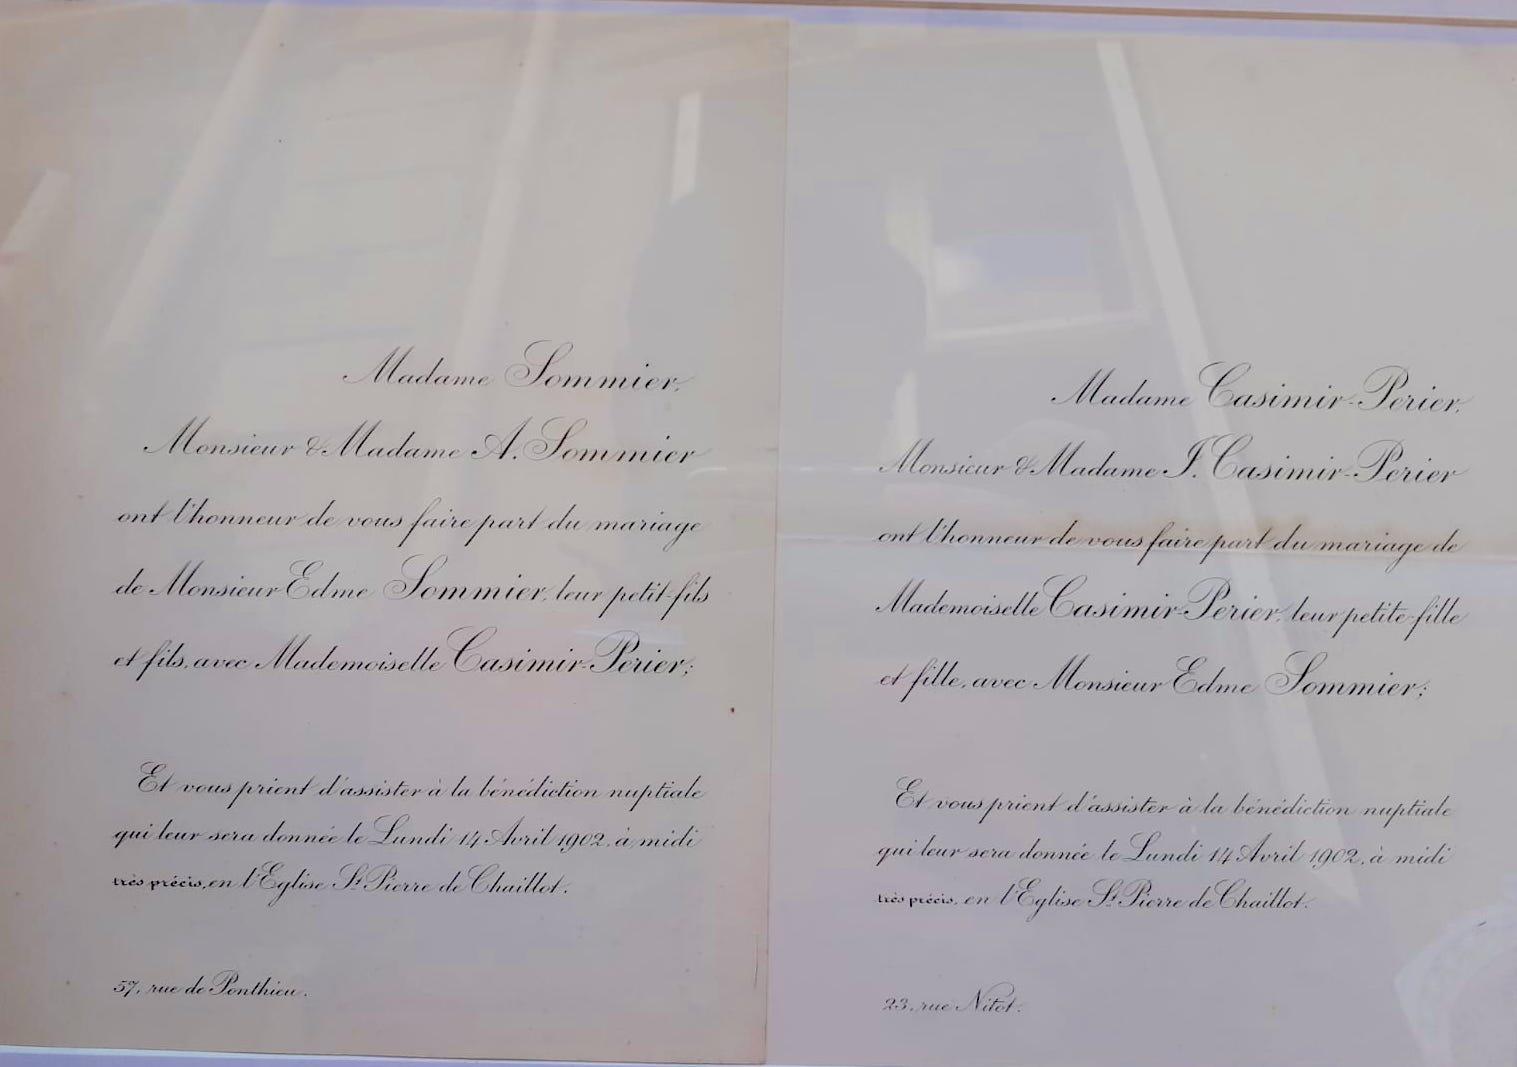 Madame Sommier,
Monsieur & Madame A. Sommier
ont l'honneur de vous faire part du mariage
de Monsieur Edme Sommier, leur petit-fils
et fils, avec Mademoiselle Casimir-Perier;
Et vous prient d'assister à la bénédiction nuptiale
qui leur sera donnée le Lundi 14 Avril 1902, à midi
très précis, en l'Eglise St Pierre de Chaillot.
57, rue de Ponthieu.
Madame Casimir-Perier,
Monsieur & Madame J. Casimir-Perier
ont l'honneur de vous faire part du mariage de
Mademoiselle Casimir-Perier, leur petite-fille
et fille, avec Monsieur Edme Sommier;
Et vous prient d'assister à la bénédiction nuptiale
qui leur sera donnée le Lundi 14 Avril 1902, à midi
très précis, en l'Eglise St Pierre de Chaillot.
23, rue Nitot.